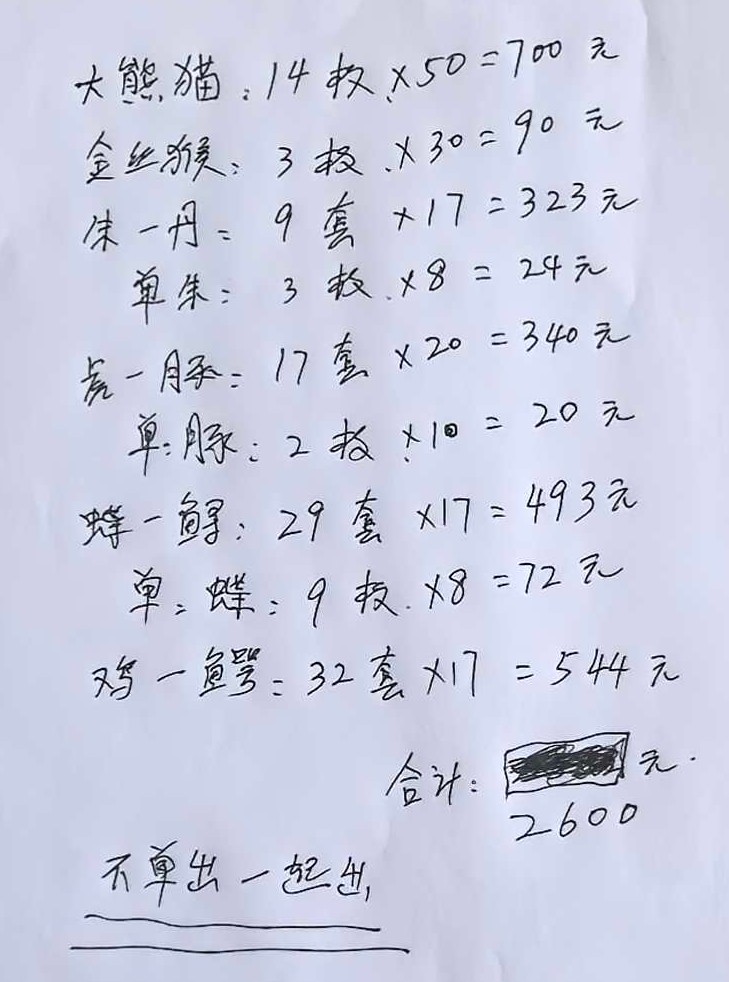 大熊猫:14枚×50=700元
金丝猴:3枚.×30=90元
朱一丹=9套×17=323元
单朱:3枚.×8=24元
虎一豚=17套×20=340元
单:豚:2枚×10=20元
蝶一鲟:29套×17=493元
单:蝶:9枚.×8=72元
鸡一鳄:32套×17=544元
合计:元.
2600
不单出一起出,